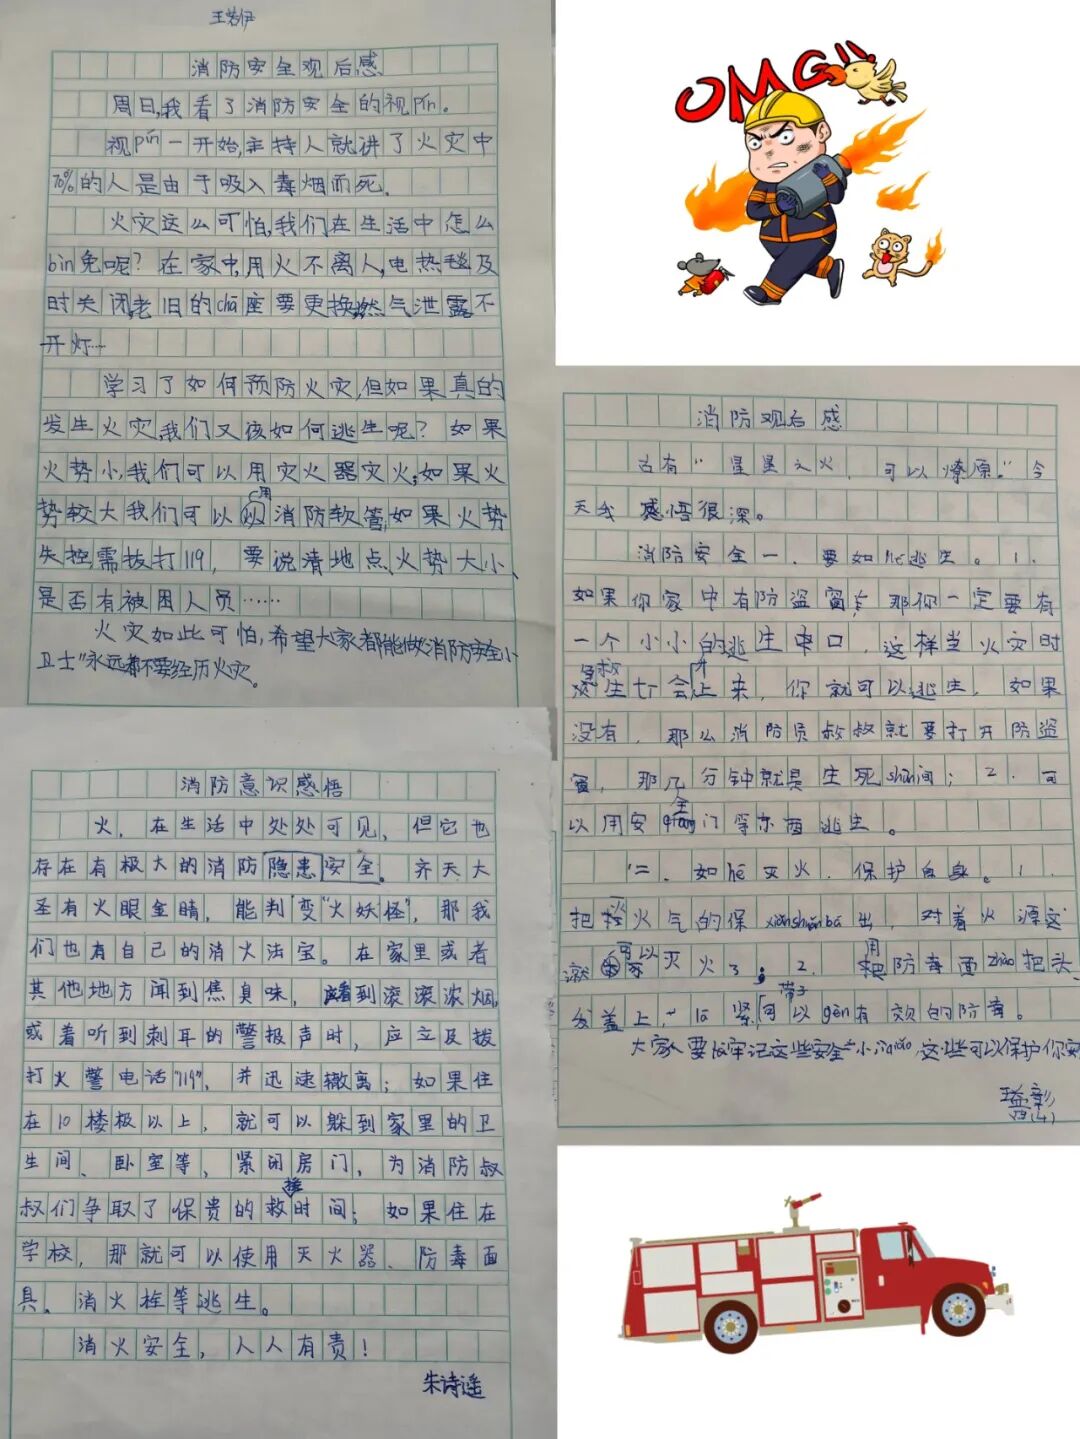 王若伊
消防安全观后感
周日,我看了消防安全的视pín。
视pín一开始,主持人就讲了火灾中
70%的人是由于吸入毒烟而死.
火灾这么可怕,我们在生活中怎么
bìn免呢?在家中,用火不离人,电热毯及
时关闭,老旧的chā座要更换,燃气泄露不
开灯…
学习了如何预防火灾,但如果真的
发生火灾,我们又该如何逃生呢?如果
火势小,我们可以用灾火器灾火;如果火
势较大我们可以用消防软管,如果火势
失控需拔打119,要说清地点、火势大小、
是否有被困人员……
火灾如此可怕,希望大家都能做“消防安全小
卫士”永远都不要经历火灾。
OMG!!
消防观后感
古有“星星之火,可以燎原。”今
天我感悟很深。
消防安全一、要如hé逃生。1.
如果你家中有防盗窗,那你一定要有
一个小小的逃生窗口,这样当火灾时
急救生才会上来,你就可以逃生,如果
没有,那么消防员叔叔就要打开防盗
窗,那几分钟就是生死shùnjiān;2.可
以用安全门等东西逃生。
二、如hé灭火,保护自身。1.
把火气的保xiǎnshuānbá出,对着火源这
可以灭火了;2.用防毒面zhào把头
盖上,紧可以gèn有效的防毒。
大家要牢记这些安全小,这些可以保护你
消防意识感悟
火,在生活中处处可见,但它也
存在有极大的消防隐患安全。齐天大
圣有火眼金睛,能判变“火妖怪”,那我
们也有自己的消火法宝。在家里或者
其他地方闻到焦臭味,看到滚滚浓烟,
或着听到刺耳的警报声时,应立及拨
打火警电话“119”,并迅速辙离;如果住
在10楼极以上,就可以躲到家里的卫
生间、卧室等,紧闭房门,为消防叔
叔们争取了保贵的救援时间;如果住在
学校,那就可以使用灭火器、防毒面
具、消火栓等逃生。
消火安全,人人有责!
朱诗遥